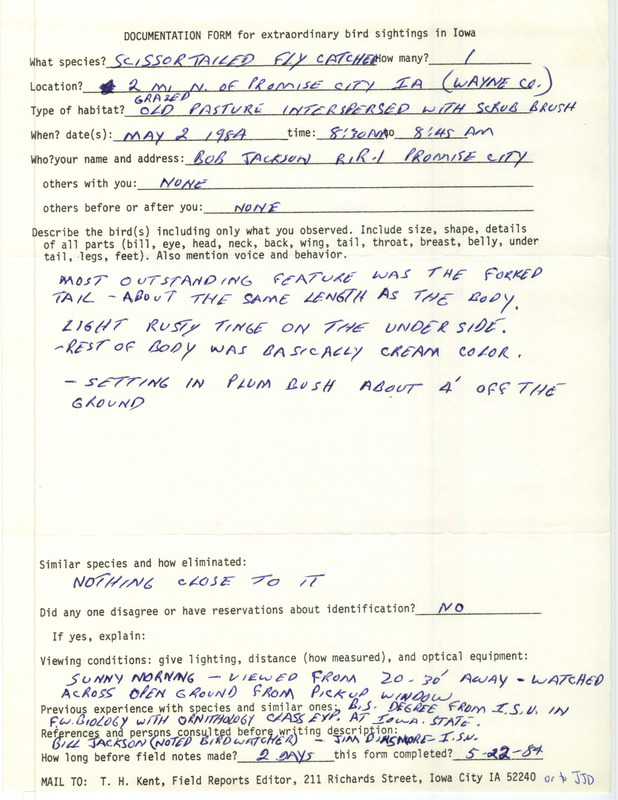 DOCUMENTATION FORM for extraordinary bird sightings in Iowa
What species? SCISSORTAILED FLY CATCHER How many? 1
Location? 2 MI. N. OF PROMISE CITY IA (WAYNE CO.)
GRAZED
Type of habitat? OLD PASTURE INTERSPERSED WITH SCRUB BRUSH
When? date(s): MAY 2 1984 time: 8:30AM to 8:45 AM
Who?your name and address: BOB JACKSON R.R.1 PROMISE CITY
others with you: NONE
others before or after you: NONE
Describe the bird(s) including only what you observed. Include size, shape, details
of all parts (bill, eye, head, neck, back, wing, tail, throat, breast, belly, under
tail, legs, feet). Also mention voice and behavior.
MOST OUTSTANDING FEATURE WAS THE FORKED
TAIL - ABOUT THE SAME LENGTH AS THE BODY.
LIGHT RUSTY TINGE ON THE UNDER SIDE.
- REST OF BODY WAS BASICALLY CREAM COLOR.
- SETTING IN PLUM BUSH ABOUT 4' OFF THE
GROUND
Similar species and how eliminated:
NOTHING CLOSE TO IT
Did any one disagree or have reservations about identification? NO
If yes, explain:
Viewing conditions: give lighting, distance (how measured), and optical equipment:
SUNNY MORNING - VIEWED FROM 20-30' AWAY - WATCHED
ACROSS OPEN GROUND FROM PICKUP WINDOW
Previous experience with species and similar ones: B.S. DEGREE FROM I.S.U. IN
F.W. BIOLOGY WITH ORNITHOLOGY CLASS EXP. AT IOWA STATE.
References and persons consulted before writing description:
BILL JACKSON (NOTED BIRDWATCHER) - JIM DINSMORE I.S.U.
How long before field notes made? 2 DAYS this form completed? 5-22-84
MAIL TO: T. H. Kent, Field Reports Editor, 211 Richards Street, Iowa City IA 52240 or to JJD